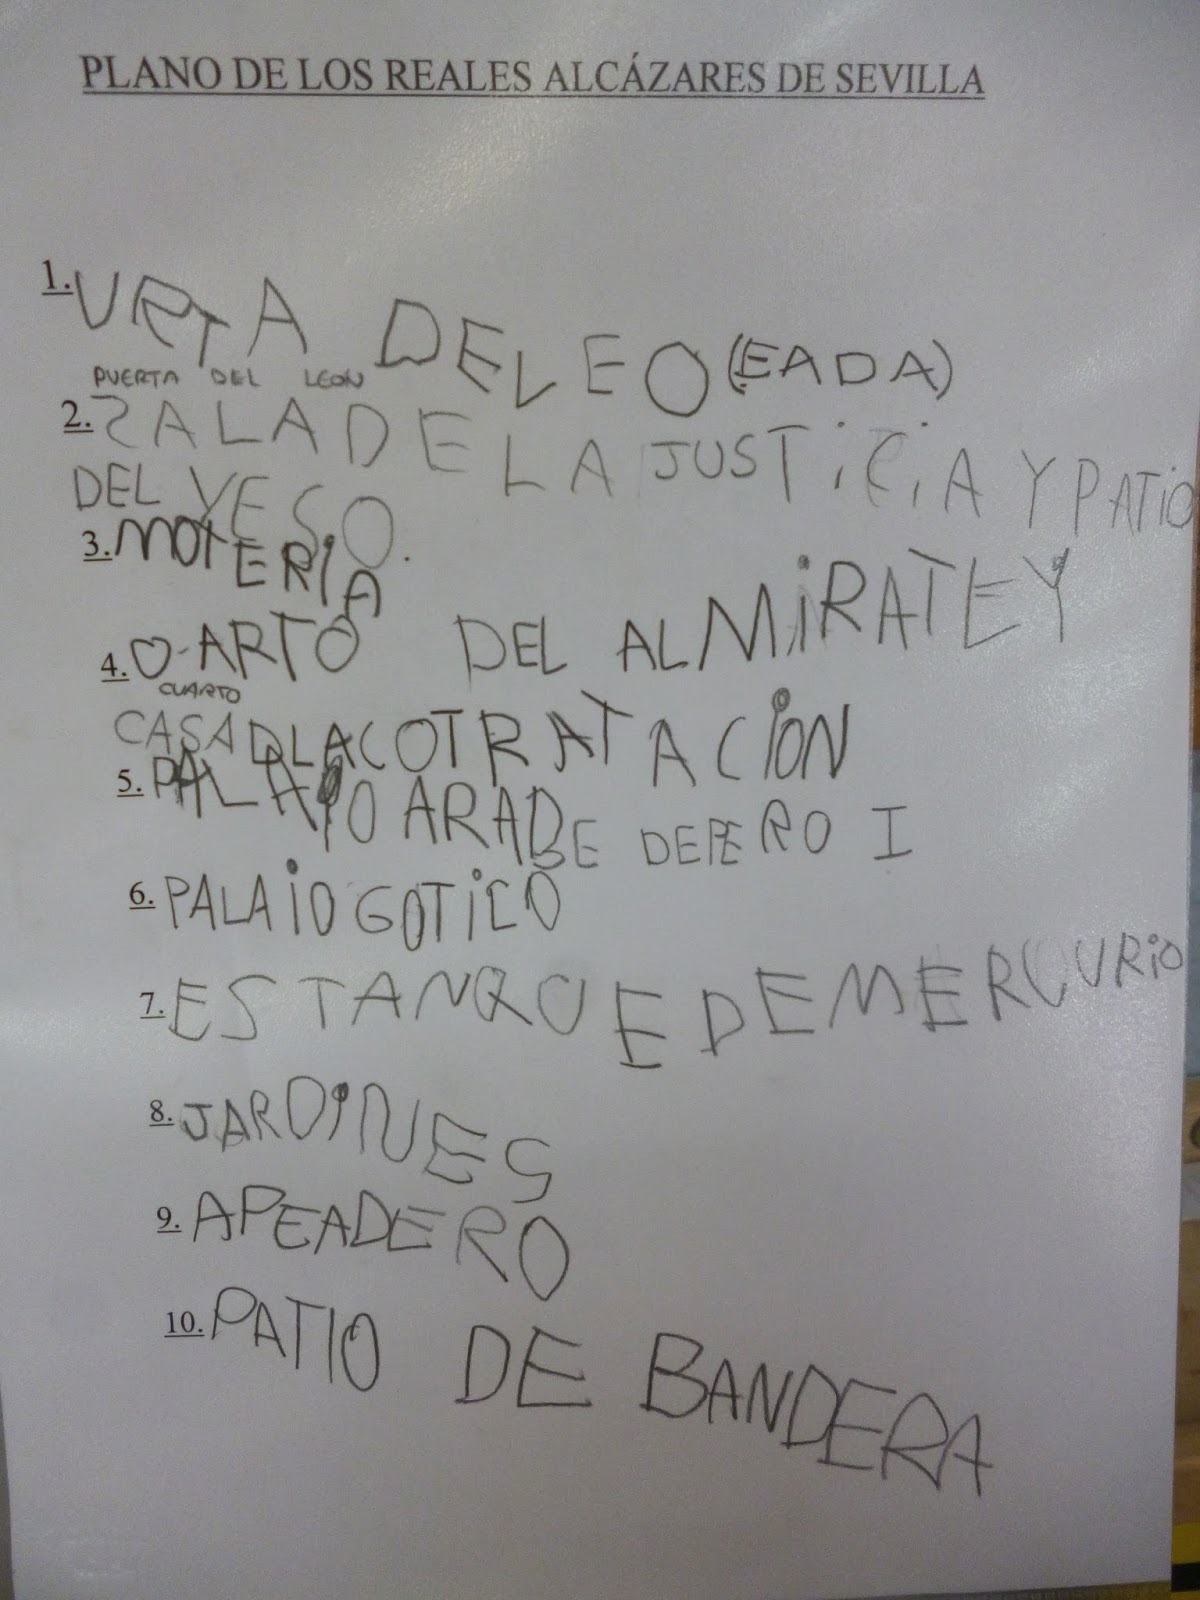 PLANO DE LOS REALES ALCÁZARES DE SEVILLA
1. URTA DELEO (EADA)
PUERTA DEL LEON
2. SALADE LA JUSTiCiA Y PATiO
DEL YESO.
3. MOTERiA
4. O-ARTO DEL ALMiRATE Y
CUARTO
CASADLACOTRATACiON
5. PALAiO ARABE DEPERO I
6. PALAiO GOTiCO
7. ESTANQUE DE MERCURiO
8. JARDiNES
9. APEADERO
10. PATIO DE BANDERA